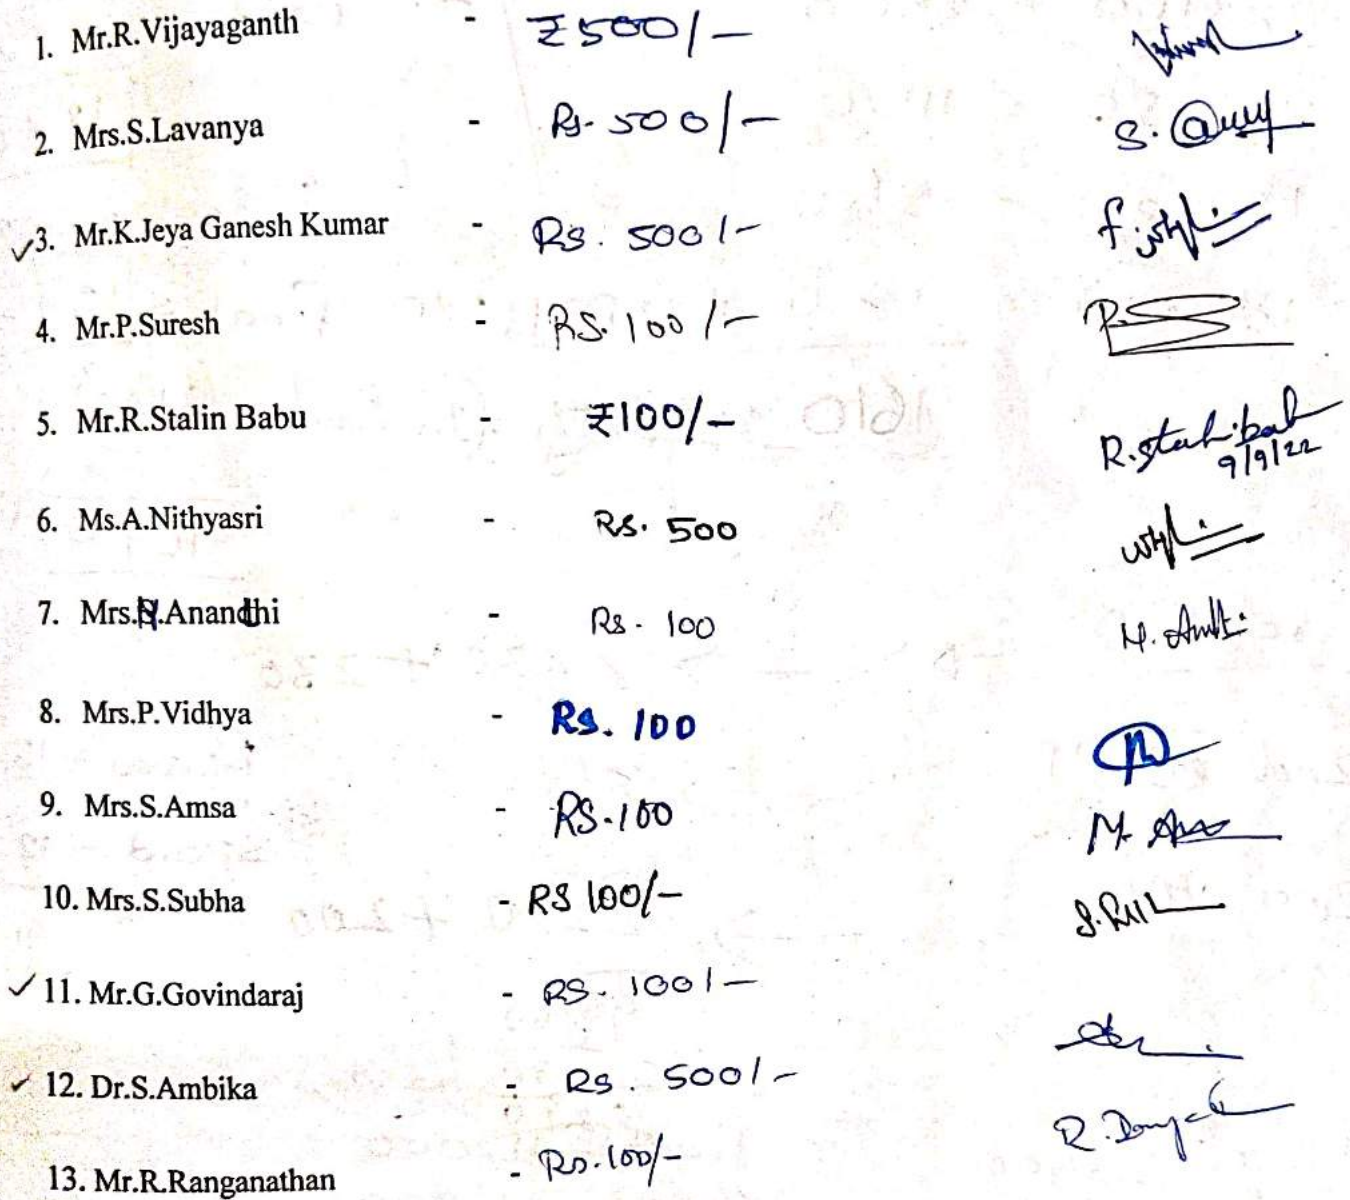 1. Mr.R.Vijayaganth - ₹500/-
2. Mrs.S.Lavanya - Rs. 500/- S.
✓3. Mr.K.Jeya Ganesh Kumar - Rs. 500/-
4. Mr.P.Suresh - RS. 100/- P.S
5. Mr.R.Stalin Babu - ₹100/- R.
9/9/22
6. Ms.A.Nithyasri - Rs. 500
7. Mrs.N.Anandhi - Rs. 100
8. Mrs.P.Vidhya - Rs. 100
9. Mrs.S.Amsa - RS.100
10. Mrs.S.Subha - RS 100/-
✓ 11. Mr.G.Govindaraj - RS. 100/-
✓ 12. Dr.S.Ambika - RS. 500/-
13. Mr.R.Ranganathan - Rs.100/-